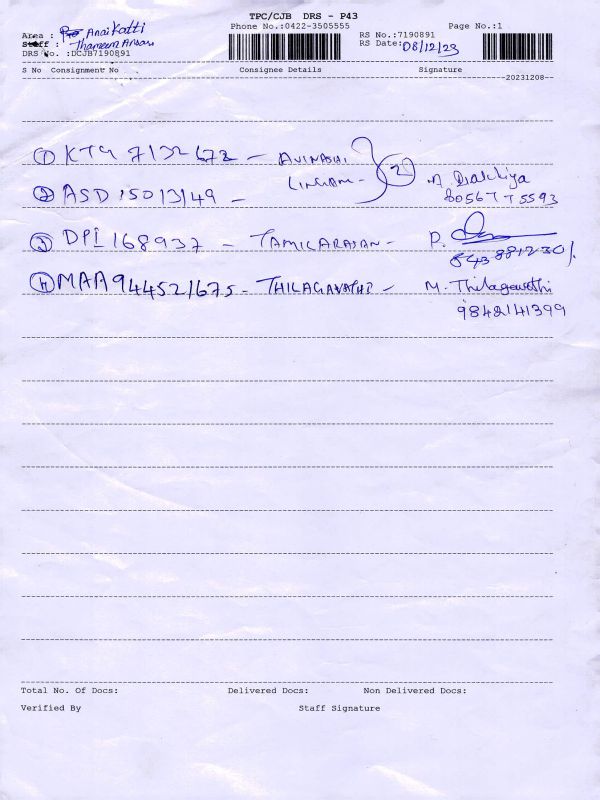 TPC/CJB DRS - P43
Area : Anaikatti Phone No.:0422-3505555 RS No.:7190891 Page No.:1
Staff : Thameem Ansari RS Date: 08/12/23
DRS No. :DCJB7190891
S No Consignment No Consignee Details Signature
20231208
① KTG 7132672 - AVINASHI
② ASD 15013149 - LINGAM - ② 
80567 75593
③ DPL 168937 - TAMILARASAN - P.
④ MAA944521675 - THILAGAVATHI - M. Thilagavathi
9842141399
Total No. Of Docs: Delivered Docs: Non Delivered Docs:
Verified By Staff Signature